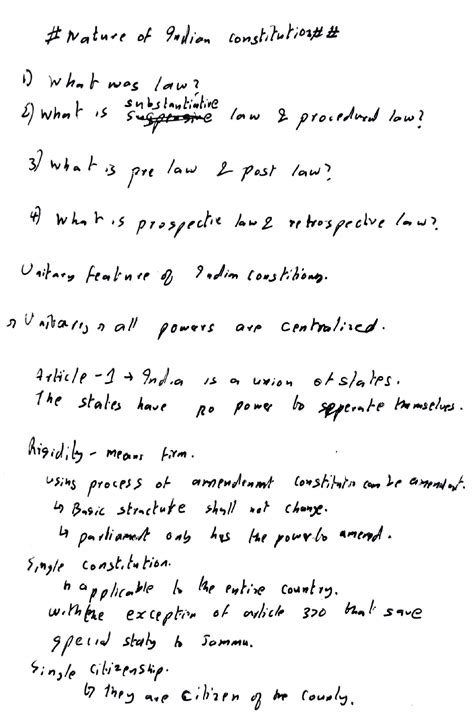 # Nature of Indian constitution##
1) What was law?
2) What is substantiative law & procedural law?
3) What is pre law & post law?
4) What is prospectie law & retrospective law?
Unitary feature of Indian Constitions.
Unitary all powers are centralized.
Article - 1 → India is a union of states.
The states have no power to seperate themselves.
Rigidity - means firm.
Using process of amendenmt constitutn can be amendmt.
↳ Basic structure shall not change.
↳ parliament only has the power to amend.
Single constitution.
↳ applicable to the entire country.
with the exception of article 370 that save
special staty to Jammu.
Single Citizenship.
↳ They are citizen of the County.